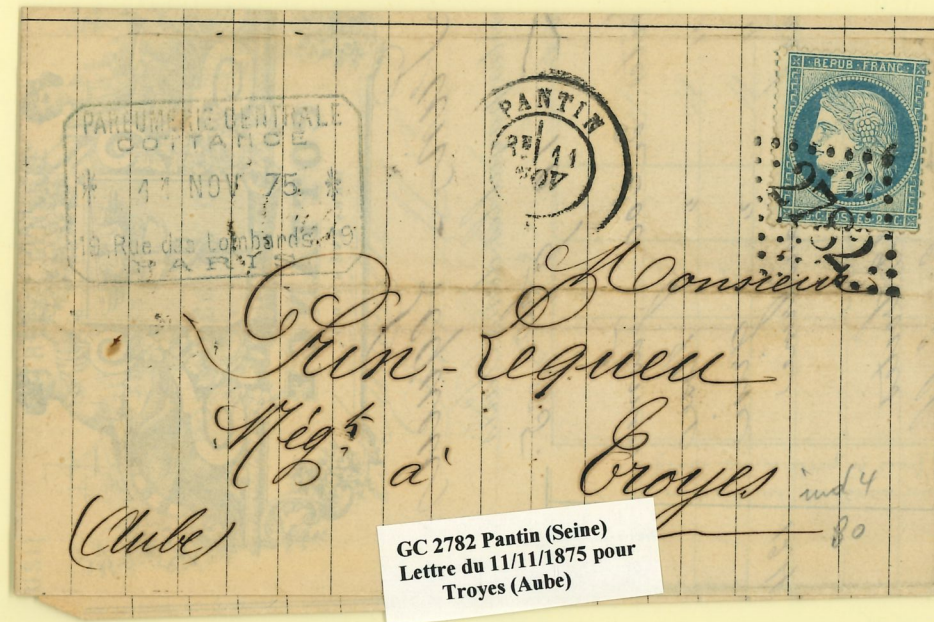 PARFUMERIE CENTRALE
COITANCE
* 11 NOV 75 *
19, Rue des Lombards, 19
PARIS
PANTIN
11
NOV
REPUB. FRANC.
2782
Monsieur
Prin-Lequeu
Négt
à Troyes
(Aube)
ind 4
80
GC 2782 Pantin (Seine)
Lettre du 11/11/1875 pour
Troyes (Aube)